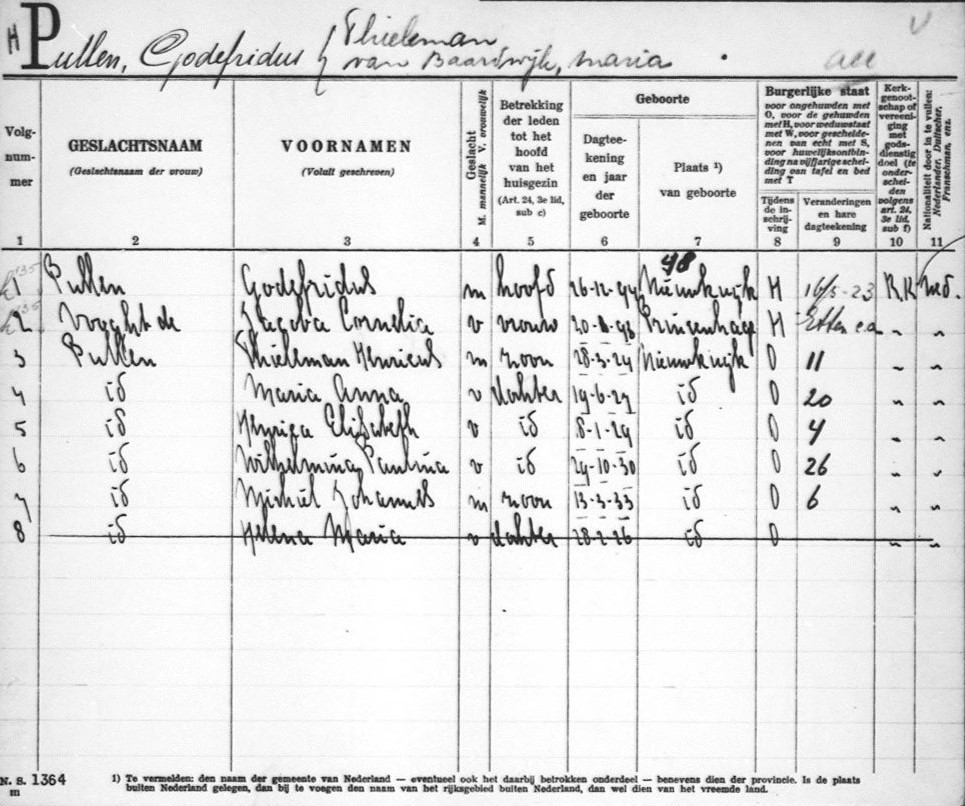 H Pullen, Godefridus { Thieleman V
van Baardwijk, Maria . all
Volg-
num-
mer
GESLACHTSNAAM
(Geslachtsnaam der vrouw)
VOORNAMEN
(Voluit geschreven)
Geslacht
M. mannelijk V. vrouwelijk
Betrekking
der leden
tot het
hoofd
van het
huisgezin
(Art. 24, 3e lid,
sub c)
Geboorte
Dagtee-
kening
en jaar
der
geboorte
Plaats 1)
van geboorte
Burgerlijke staat
voor ongehuwden met
O, voor de gehuwden
met H, voor weduwstaat
met W, voor gescheide-
nen van echt met S,
voor huwelijksontbin-
ding na vijfjarige schei-
ding van tafel en bed
met T
Tijdens
de in-
schrij-
ving
Veranderingen
en hare
dagteekening
Kerk-
genoot-
schap of
vereeni-
ging
met
gods-
dienstig
doel (te
onder-
schei-
den
volgens
art. 24,
3e lid,
sub f)
Nationaliteit door in te vullen:
Nederlander, Duitscher,
Franschman, enz.
1 2 3 4 5 6 7 8 9 10 11
48
'35
1 Pullen Godefridus m hoofd 26-12-94 Nieuwkuijk H 16/5-23 R.K Ned.
'35
2 Vooght de Jacoba Cornelia v vrouw Princenhage H Etten c.a „ „
3 Pullen Thieleman Henricus m zoon 28-3-24 Nieuwkuijk O 11 „ „
4 id Maria Anna v dochter 19-6-27 id O 20 „ „
5 id Henrica Elisabeth v id 8-1-29 id O 4 „ „
6 id Wilhelmina Paulina v id 29-10-30 id O 26 „ „
7 id Michiel Johannes m zoon 13-3-33 id O 6 „ „
8 id Helena Maria v dochter 28-2-26 id O „ „
N. S. 1364
m
1) Te vermelden: den naam der gemeente van Nederland — eventueel ook het daarbij betrokken onderdeel — benevens dien der provincie. Is de plaats
buiten Nederland gelegen, dan bij te voegen den naam van het rijksgebied buiten Nederland, dan wel dien van het vreemde land.